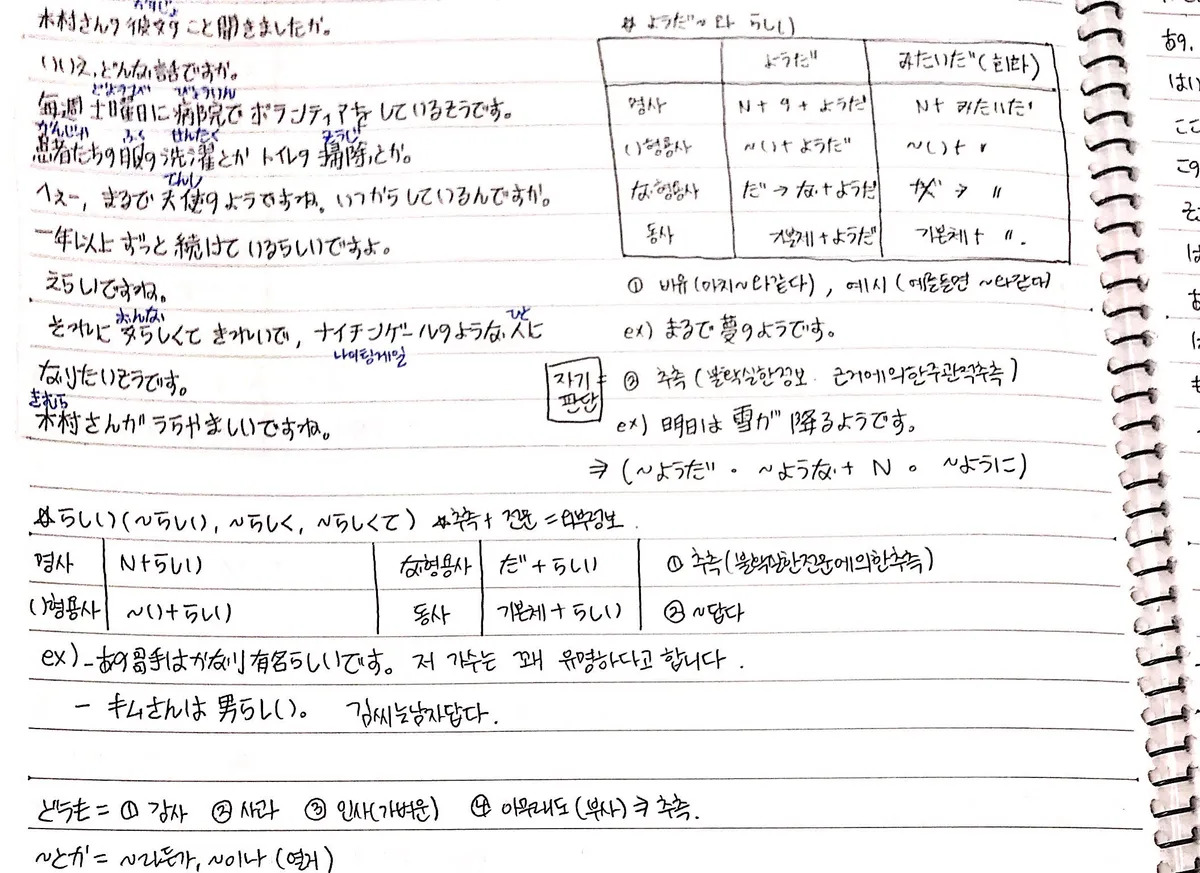 かのじょ
木村さんの彼女のこと聞きましたか。
いいえ、どんな話ですか。
どようび びょういん
毎週土曜日に病院でボランティアをしているそうです。
かんじゃ ふく せんたく そうじ
患者たちの服の洗濯とかトイレの掃除とか。
てんし
へぇー, まるで天使のようですね。いつからしているんですか。
一年以上ずっと続けているらしいですよ。
えらいですね。
おんな ひと
それに女らしくてきれいで, ナイチンゲールのような人に
나이팅게일
なりたいそうです。
きむら
木村さんがうらやましいですね。
# ようだ와 らしい
ようだ みたいだ(회화)
명사 N+の+ようだ N+みたいだ
い형용사 ~い+ようだ ~い+〃
な형용사 だ→な+ようだ だ → 〃
동사 기본체+ようだ 기본체+〃.
① 비유(마치~와같다), 예시(예를들면 ~와같다)
ex) まるで夢のようです。
자기판단 = ② 추측(불확실한정보. 근거에의한주관적추측)
ex) 明日は雪が降るようです。
⇒ (~ようだ。~ような+N。~ように)
#らしい(~らしい, ~らしく, ~らしくて) #추측+전문=외부정보.
명사 N+らしい な형용사 だ+らしい ① 추측(불확실한전문에의한추측)
い형용사 ~い+らしい 동사 기본체+らしい ② ~답다
ex) -あの歌手はかなり有名らしいです。 저 가수는 꽤 유명하다고 합니다.
- キムさんは男らしい。 김씨는남자답다.
どうも= ① 감사 ② 사과 ③ 인사(가벼운) ④ 아무래도(부사)⇒추측.
~とか= ~라든가, ~이나 (열거)